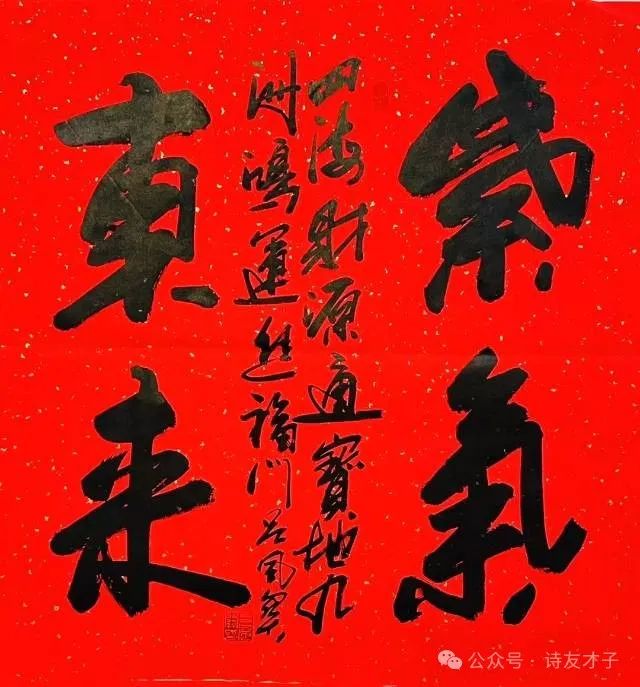 紫氣
四海財源通寶地九
州鴻運進福门
東来
公众号 · 诗友才子